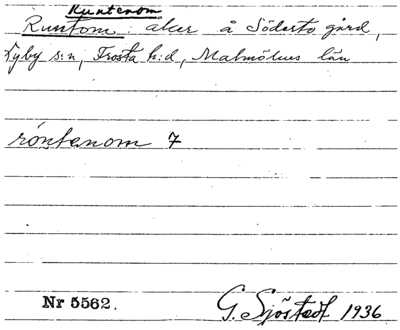 Runtenom
Runtom: åker å Söderto gård,
Lyby s:n, Frosta h:d, Malmöhus län
röntenom 7
Nr 5562. G. Sjöstedt 1936